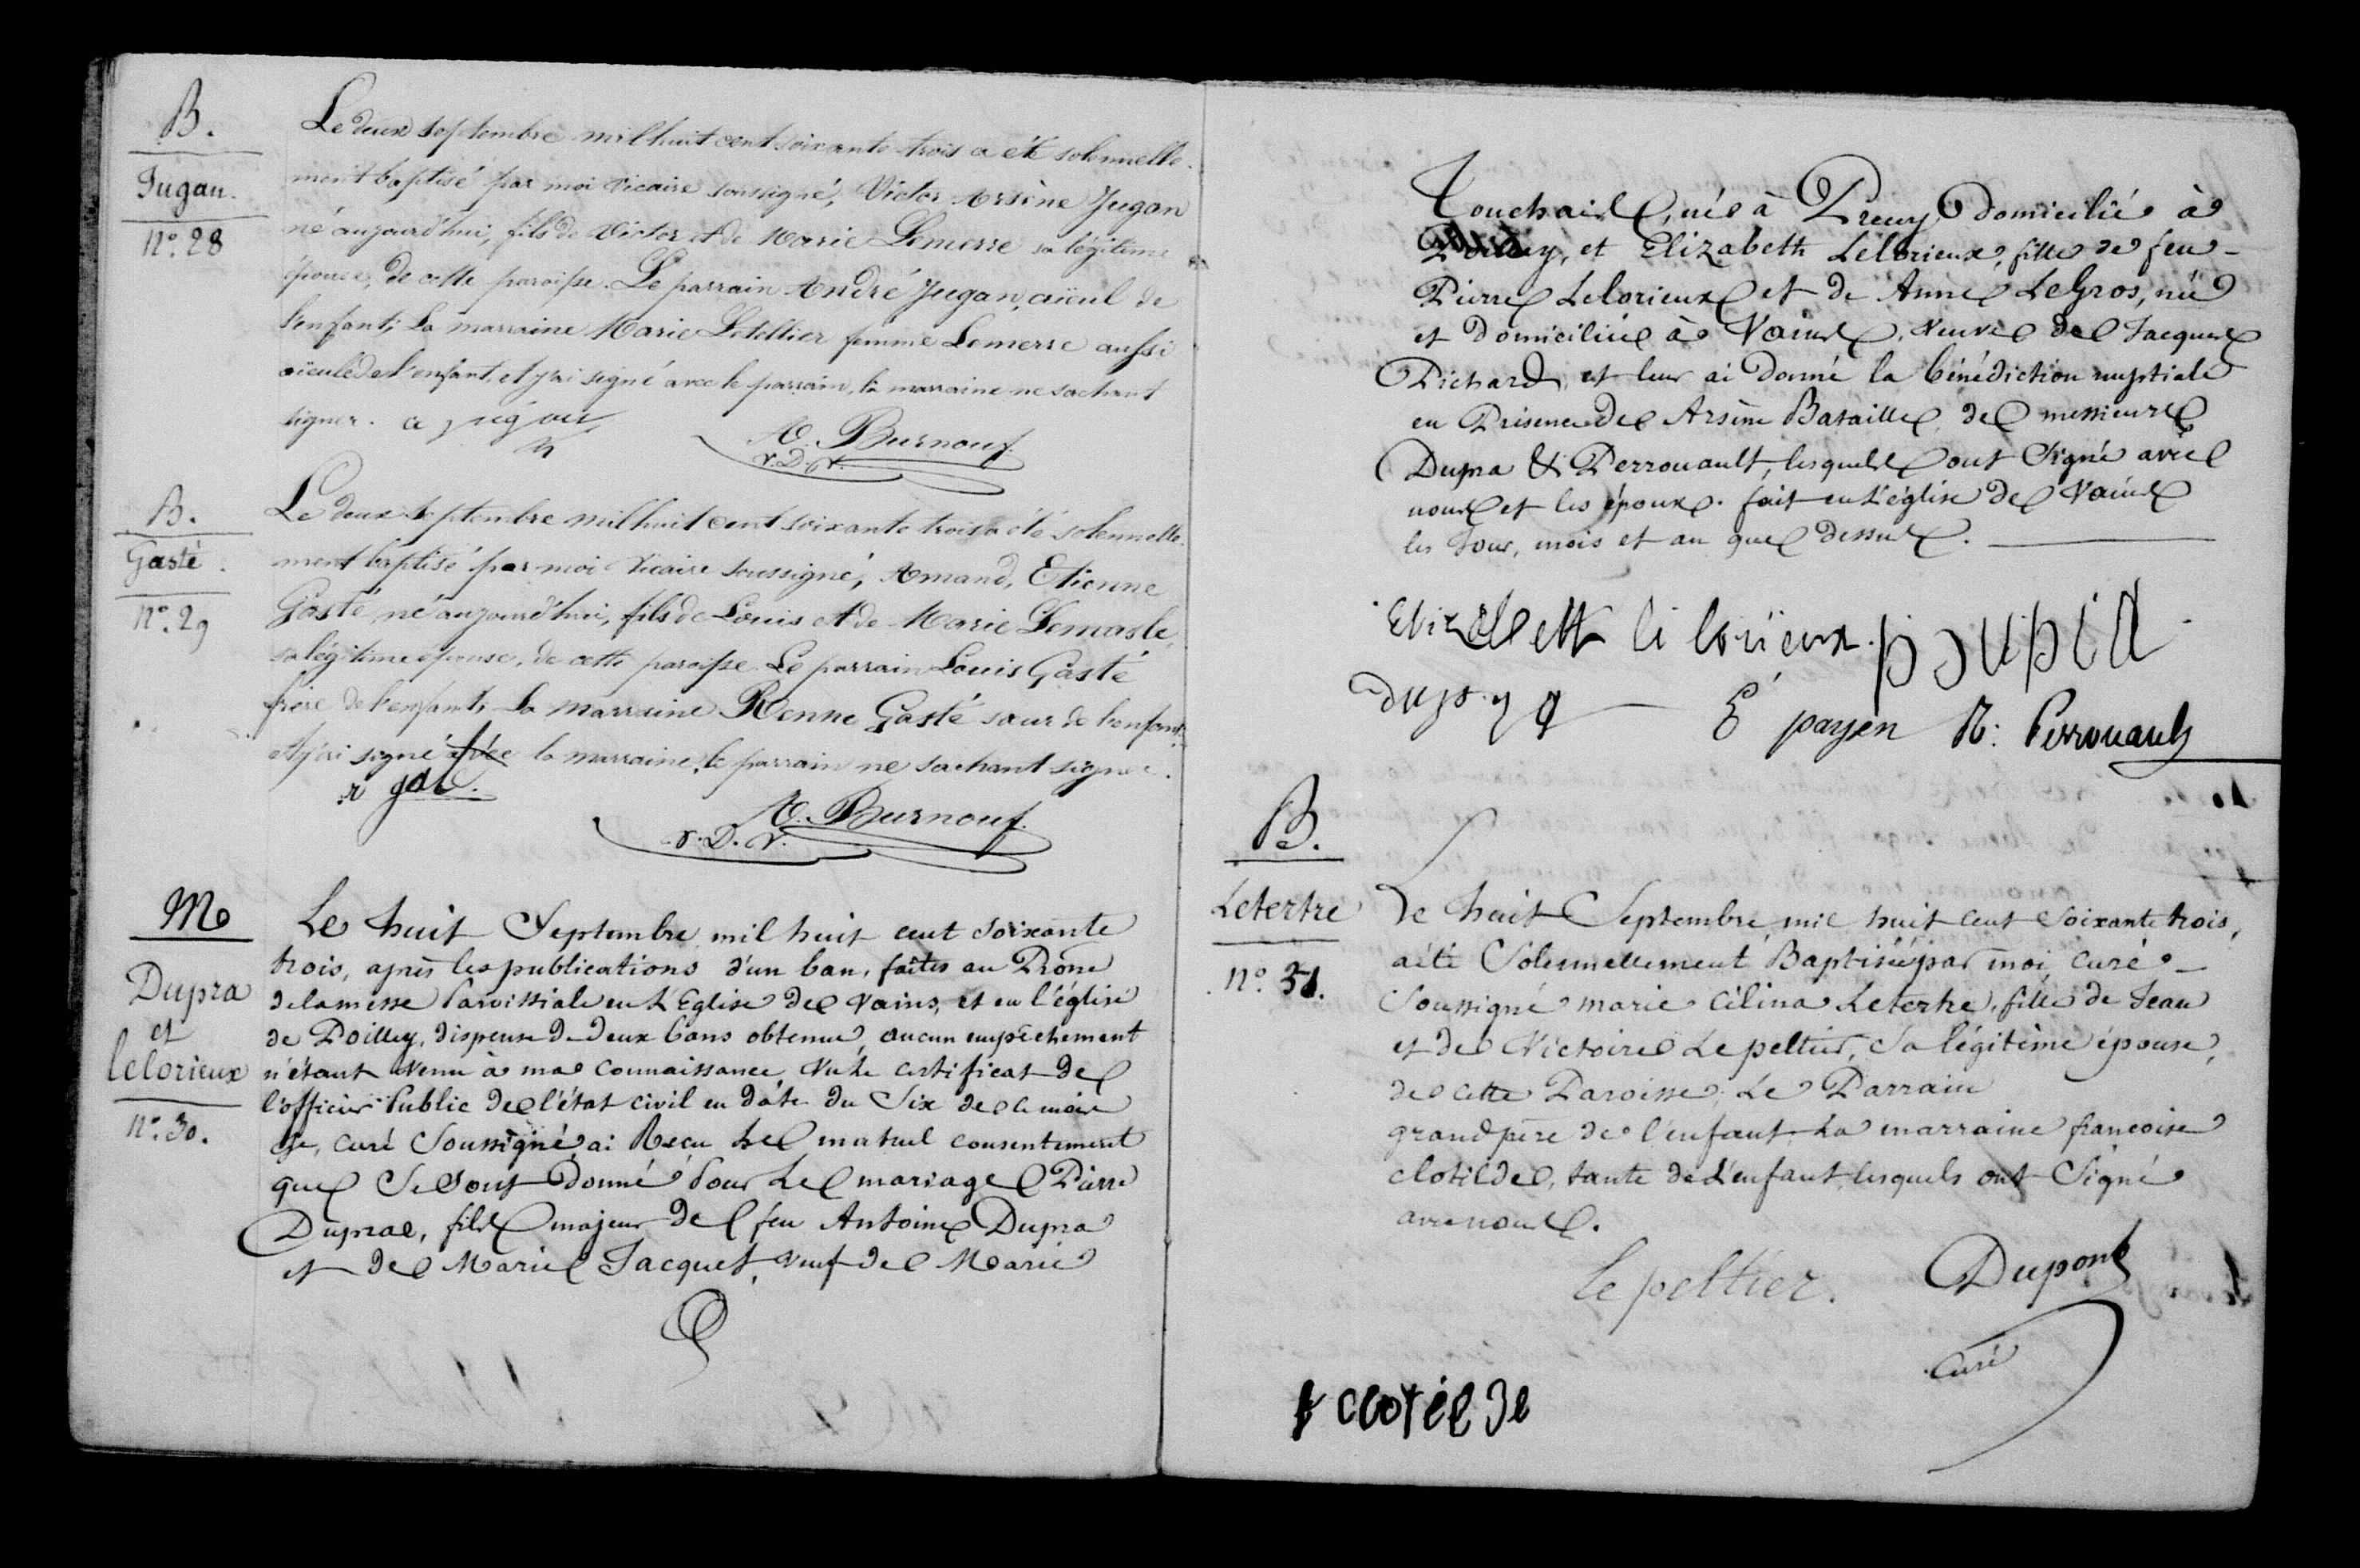 B.
Jugan.
N°. 28
Le deux septembre mil huit cent soixante trois a été solennelle-
ment baptisé par moi vicaire soussigné, Victor Arsène Jugan
né aujourd'hui, fils de Victor et de Marie Lemerre sa légitime
épouse, de cette paroisse. Le parrain André Jugan, aïeul de
l'enfant, La marraine Marie Letellier femme Lemerre aussi
aïeule de l'enfant, et j'ai signé avec le parrain, la marraine ne sachant
signer.
A. Burnouf.
v. D. V.
B.
Gasté.
N°. 29
Le deux septembre mil huit cent soixante trois a été solennelle-
ment baptisé par moi vicaire soussigné, Amand, Etienne
Gasté, né aujourd'hui, fils de Louis et de Marie Lemasle,
sa légitime épouse, de cette paroisse. Le parrain Louis Gasté
frère de l'enfant, La marraine Renne Gasté sœur de l'enfant,
et j'ai signé avec la marraine, le parrain ne sachant signer.
A. Burnouf.
v. D. V.
M
Dupra
et
lelorieux
N°. 30.
Le huit Septembre mil huit cent soixante
trois, après les publications d'un ban, faites au Prône
de la messe Paroissiale en L'Eglise de Vains, et en l'église
de Poilley, dispense de deux bans obtenue, aucun empêchement
n'étant venu à ma connaissance, Vu Le certificat de
l'officier Public de l'état civil en date du Six de ce mois
Je, curé Soussigné ai Reçu le mutuel consentement
que Se Sont donné Pour Le mariage Pierre
Duprae, fils majeur de feu Antoine Dupra
et de Marie Jacquet, veuf de Marie
Touchais, né à Precey, domicilié à
Poilley, et Elizabeth Lelorieux, fille de feu
Pierre Lelorieux et de Anne LeGros, née
et domiciliée à Vains, Veuve de Jacques
Pichard, et leur ai donné la bénédiction nuptiale
en Présence de Arsène Bataille, de messieurs
Dupra & Perrouault, lesquels ont Signé avec
nous et les époux. fait en L'église de Vains
les Jour, mois et an que dessus.
Elizabeth le lorieux.
E payen R. Perrouault
B.
Letertre
N°. 31.
Le huit Septembre mil huit cent Soixante trois,
a été Solennellement Baptisée par moi, curé
Soussigné marie Célina Letertre, fille de Jean
et de Victoire Lepeltier, Sa légitime épouse,
de cette Paroisse; Le Parrain
grand père de l'enfant La marraine françoise
clotilde, tante de L'enfant, lesquels ont Signé
avec nous.
Le peltier. Dupont
curé